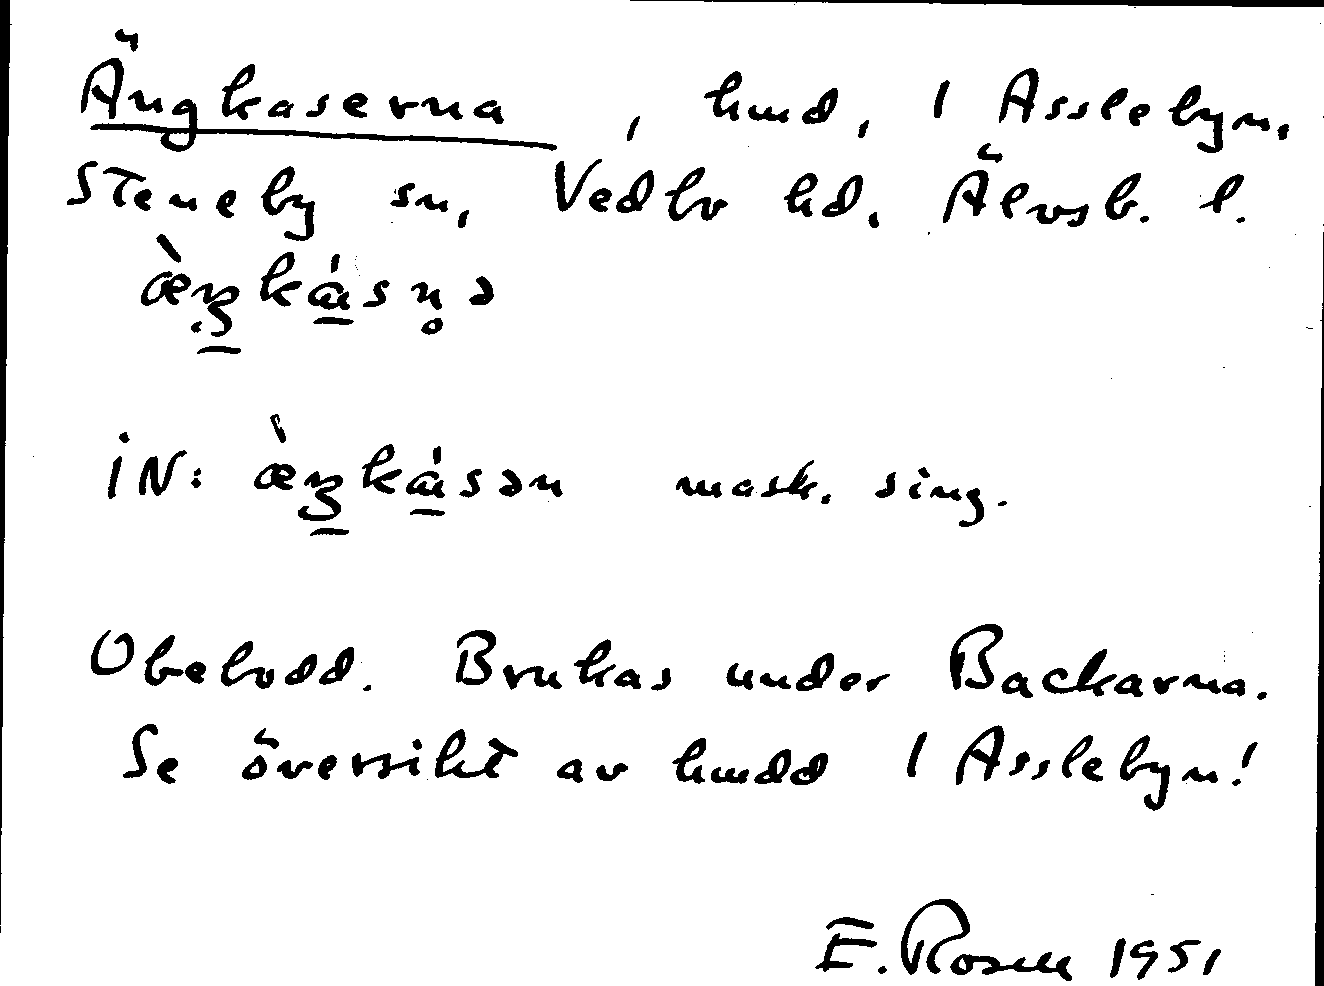 Ängkaserna, hmd, 1 Asslebyn,
Steneby sn, Vedbo hd, Älvsb. l.
æ̀ŋkásn̥ə
IN: æ̀ŋkásən mask. sing.
Obebodd. Brukas under Backarna.
Se översikt av hmdd 1 Asslebyn!
E. Rosell 1951